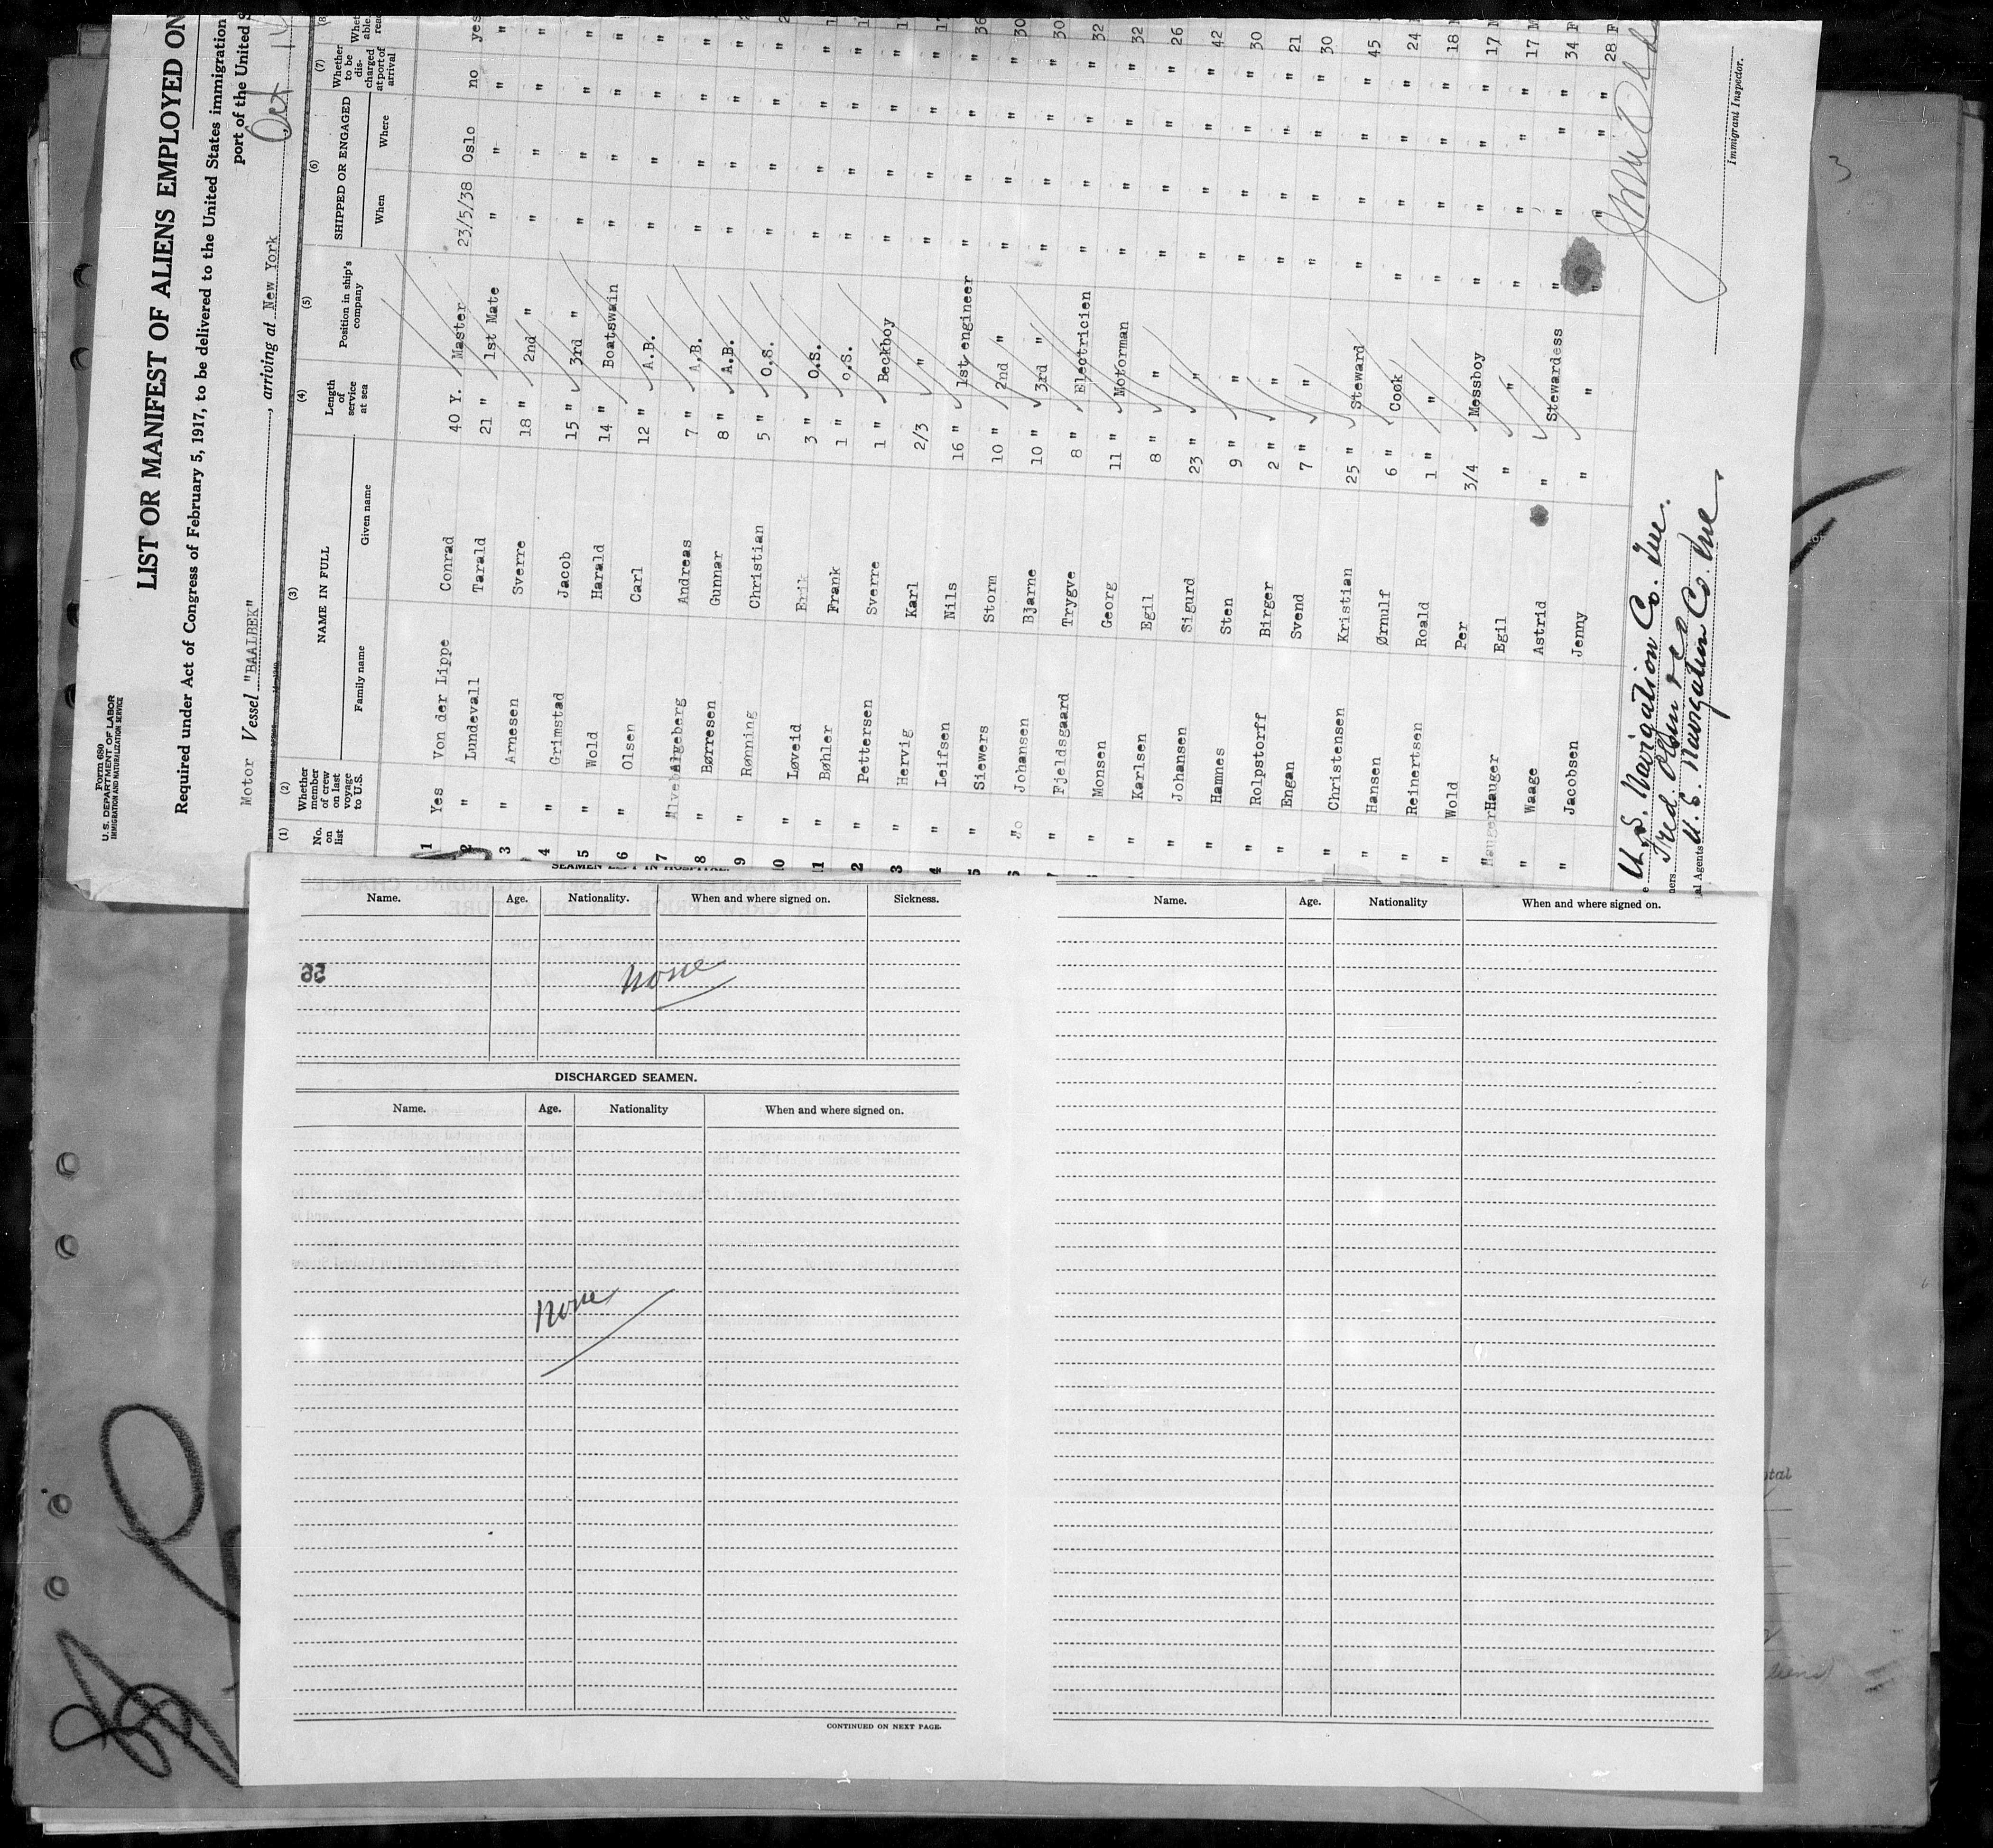 Form 680
U. S. DEPARTMENT OF LABOR
IMMIGRATION AND NATURALIZATION SERVICE
LIST OR MANIFEST OF ALIENS EMPLOYED ON
Required under Act of Congress of February 5, 1917, to be delivered to the United States immigration
port of the United S
Motor Vessel "BAALBEK", arriving at New York Oct 14
(1) (2) (3) (4) (5) (6) (7) (8
No. on list Whether member of crew on last voyage to U.S. NAME IN FULL Length of service at sea Position in ship's company SHIPPED OR ENGAGED Whether to be discharged at port of arrival
Family name Given name When Where
1 Yes Von der Lippe Conrad 40 Y. Master 23/5/38 Oslo no yes
2 " Lundevall Tarald 21 " 1st Mate " " " "
3 " Arnesen Sverre 18 " 2nd " " " " "
4 " Grimstad Jacob 15 " 3rd " " " " "
5 " Wold Harald 14 " Boatswain " " " "
6 " Olsen Carl 12 " A.B. " " " "
7 " Andreas 7 " A.B. " " " "
8 " Børresen Gunnar 8 " A.B. " " " "
9 " Rønning Christian 5 " O.S. " " " "
10 " Løveid Erik 3 " O.S. " " " "
11 " Bøhler Frank 1 " O.S. " " " "
2 " Pettersen Sverre 1 " Deckboy " " " "
3 " Hervig Karl 2/3 " " " " "
4 " Leifsen Nils 16 " 1st engineer " " " " 36
5 " Siewers Storm 10 " 2nd " " " " " 30
6 Johansen Bjarne 10 " 3rd " " " " " 30
" Fjeldsgaard Trygve 8 " Electricien " " " " 32
" Monsen Georg 11 " Motorman " " " " 32
" Karlsen Egil 8 " " " " " " 26
" Johansen Sigurd 23 " " " " " " 42
" Hamnes Sten 9 " " " " " " 30
" Rolpstorff Birger 2 " " " " " " 21
" Engan Svend 7 " " " " " " 30
" Christensen Kristian 25 " Steward " " " " 45
" Hansen Ørnulf 6 " Cook " " " " 24
" Reinertsen Roald 1 " " " " " " 18
" Wold Per 3/4 Messboy " " " " 17 M
" Hauger Egil " " " " " " 17 M
" Waage Astrid " Stewardess " " " " 34 F
" Jacobsen Jenny " " " " " " 28 F
U.S. Navigation Co. Inc.
ners Fred. Olsen & Co
al Agents U. S. Navigation Co. Inc.
Immigrant Inspector.
SEAMEN LEFT IN HOSPITAL.
Name. Age. Nationality. When and where signed on. Sickness.
none
DISCHARGED SEAMEN.
Name. Age. Nationality When and where signed on.
none
CONTINUED ON NEXT PAGE.
Name. Age. Nationality When and where signed on.
3